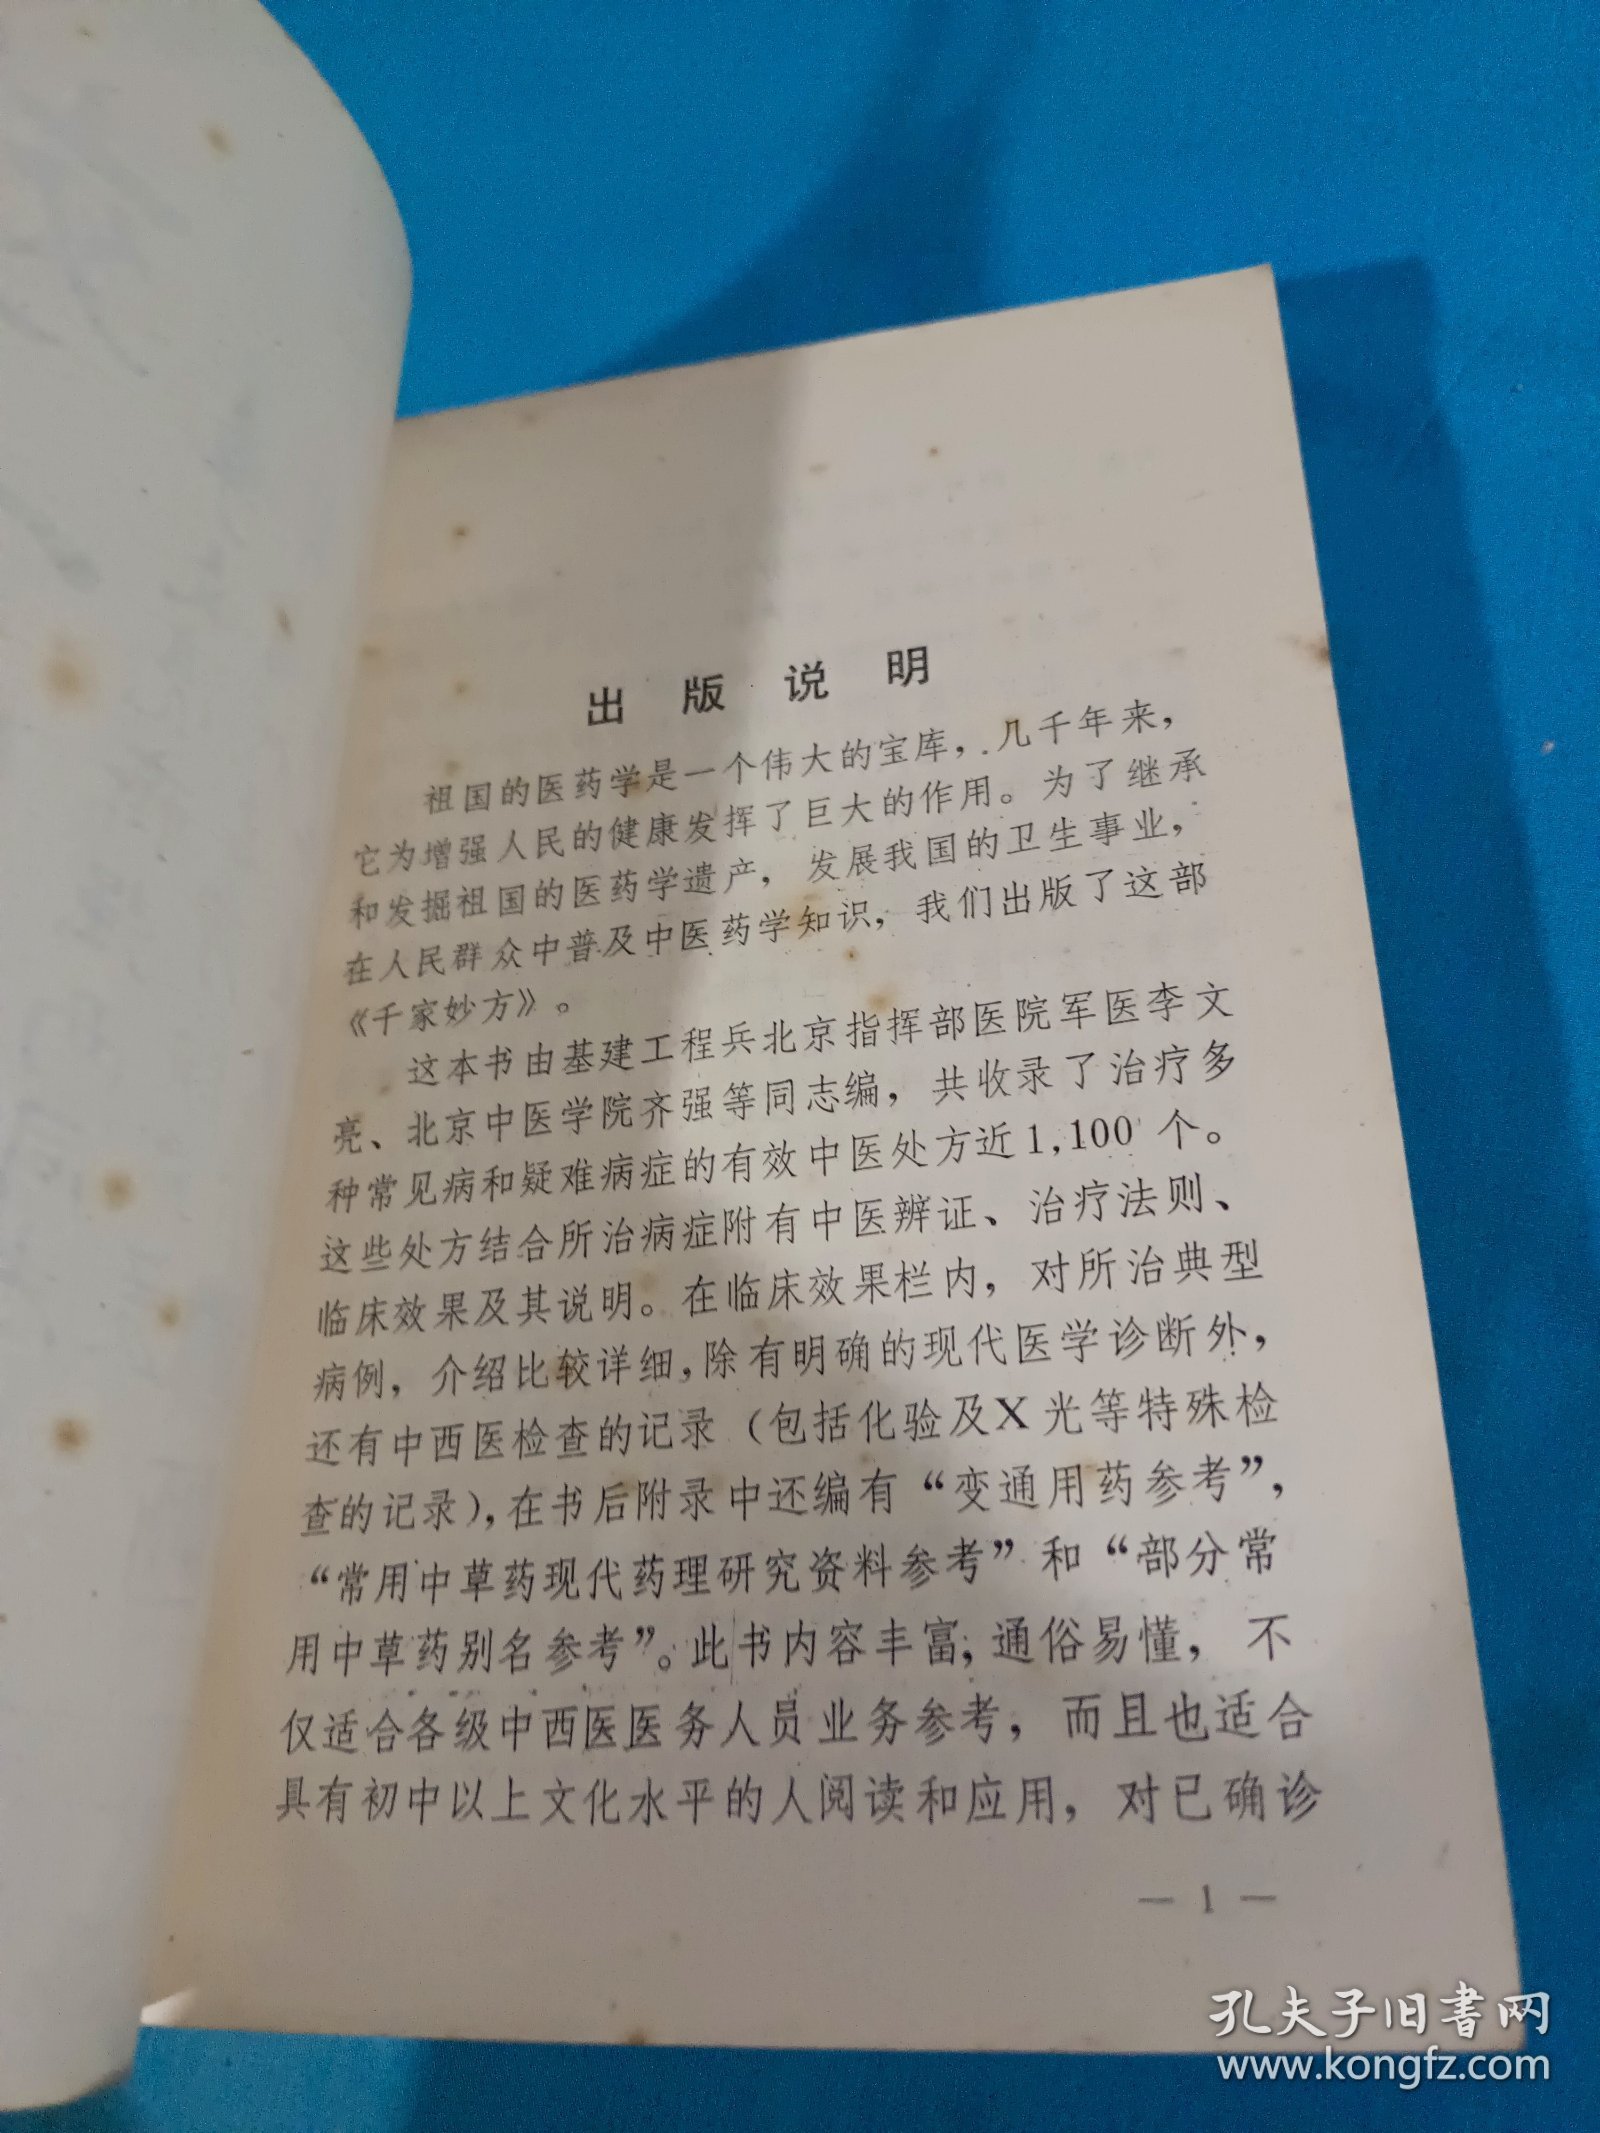 出版说明
祖国的医药学是一个伟大的宝库，几千年来，
它为增强人民的健康发挥了巨大的作用。为了继承
和发掘祖国的医药学遗产，发展我国的卫生事业，
在人民群众中普及中医药学知识，我们出版了这部
《千家妙方》。
这本书由基建工程兵北京指挥部医院军医李文
亮、北京中医学院齐强等同志编，共收录了治疗多
种常见病和疑难病症的有效中医处方近1,100个。
这些处方结合所治病症附有中医辨证、治疗法则、
临床效果及其说明。在临床效果栏内，对所治典型
病例，介绍比较详细，除有明确的现代医学诊断外，
还有中西医检查的记录（包括化验及X光等特殊检
查的记录），在书后附录中还编有“变通用药参考”，
“常用中草药现代药理研究资料参考”和“部分常
用中草药别名参考”。此书内容丰富，通俗易懂，不
仅适合各级中西医医务人员业务参考，而且也适合
具有初中以上文化水平的人阅读和应用，对已确诊
— 1 —
孔夫子旧书网
www.kongfz.com